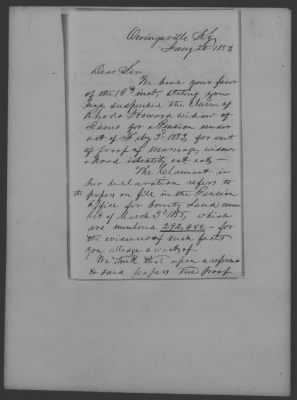 Owingsville Ky
Jany 28 1858
Dear Sir
We have your favor
of the 19th inst, stating you
had suspended the Claim of
Rhoda widow of
for a Pension under
act of Feby 3d 1853, for want
of proof of Marriage, widow
hood identity &c &c
The Claimant in
her declaration refers to
the papers on file in the Pension
Office for Bounty Land under
Act of March 3d 1855, which
are numbered 292,484 - for
the evidence of such facts
you alledge a want of.
We think that upon a reference
to said papers the Proof